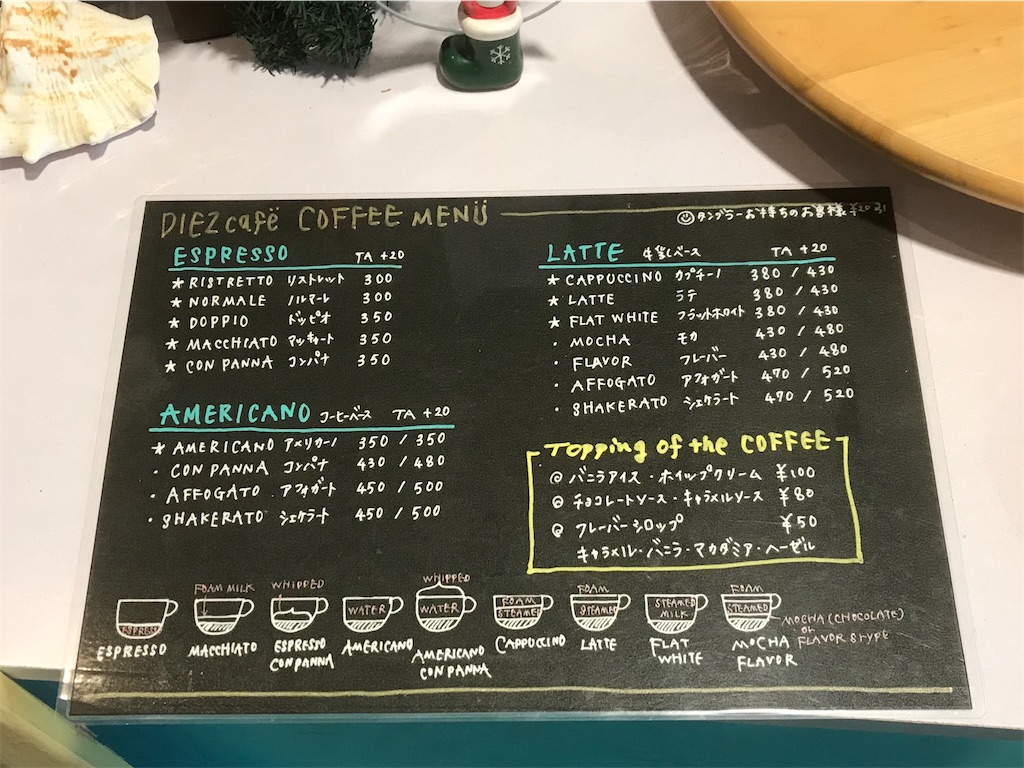 DIEZ cafë COFFEE MENÜ
タンブラーお持ちのお客様 ¥20引
ESPRESSO TA +20
★ RISTRETTO リストレット 300
★ NORMALE ノルマーレ 300
★ DOPPIO ドッピオ 350
★ MACCHIATO マッキャート 350
★ CON PANNA コンパナ 350
AMERICANO コーヒーベース TA +20
★ AMERICANO アメリカーノ 350 / 350
・ CON PANNA コンパナ 430 / 480
・ AFFOGATO アフォガート 450 / 500
・ SHAKERATO シェケラート 450 / 500
LATTE 牛乳ベース TA +20
★ CAPPUCCINO カプチーノ 380 / 430
★ LATTE ラテ 380 / 430
★ FLAT WHITE フラットホワイト 380 / 430
・ MOCHA モカ 430 / 480
・ FLAVOR フレーバー 430 / 480
・ AFFOGATO アフォガート 470 / 520
・ SHAKERATO シェケラート 470 / 520
Topping of the COFFEE
◎ バニラアイス・ホイップクリーム ¥100
◎ チョコレートソース・キャラメルソース ¥80
◎ フレーバーシロップ ¥50
キャラメル・バニラ・マカダミア・ヘーゼル
ESPRESSO
ESPRESSO
FOAM MILK
MACCHIATO
WHIPPED
ESPRESSO
CON PANNA
WATER
AMERICANO
WHIPPED
WATER
AMERICANO
CON PANNA
FOAM
STEAMED
CAPPUCCINO
FOAM
STEAMED
LATTE
STEAMED
MILK
FLAT
WHITE
FOAM
STEAMED
MOCHA
FLAVOR
MOCHA (CHOCOLATE)
or
FLAVOR SYPE